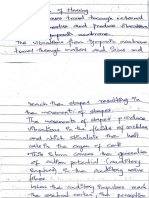 of Hearing
waves travel through external
meatus and produce vibrations
tympanic membrane.
The vibrations from tympanic membrane
travel through malleus and incus and
reach the stapes resulting in
the movement of stapes.
The movement of stapes produce
vibrations in the fluids of cochlea
and which stimulate the hair cells
in the organ of corti
This inturn causes the generation
of action potential (auditory
impulse) in the auditory nerve
fibres
When the auditory impulses reach
the cerebral cortex the perception